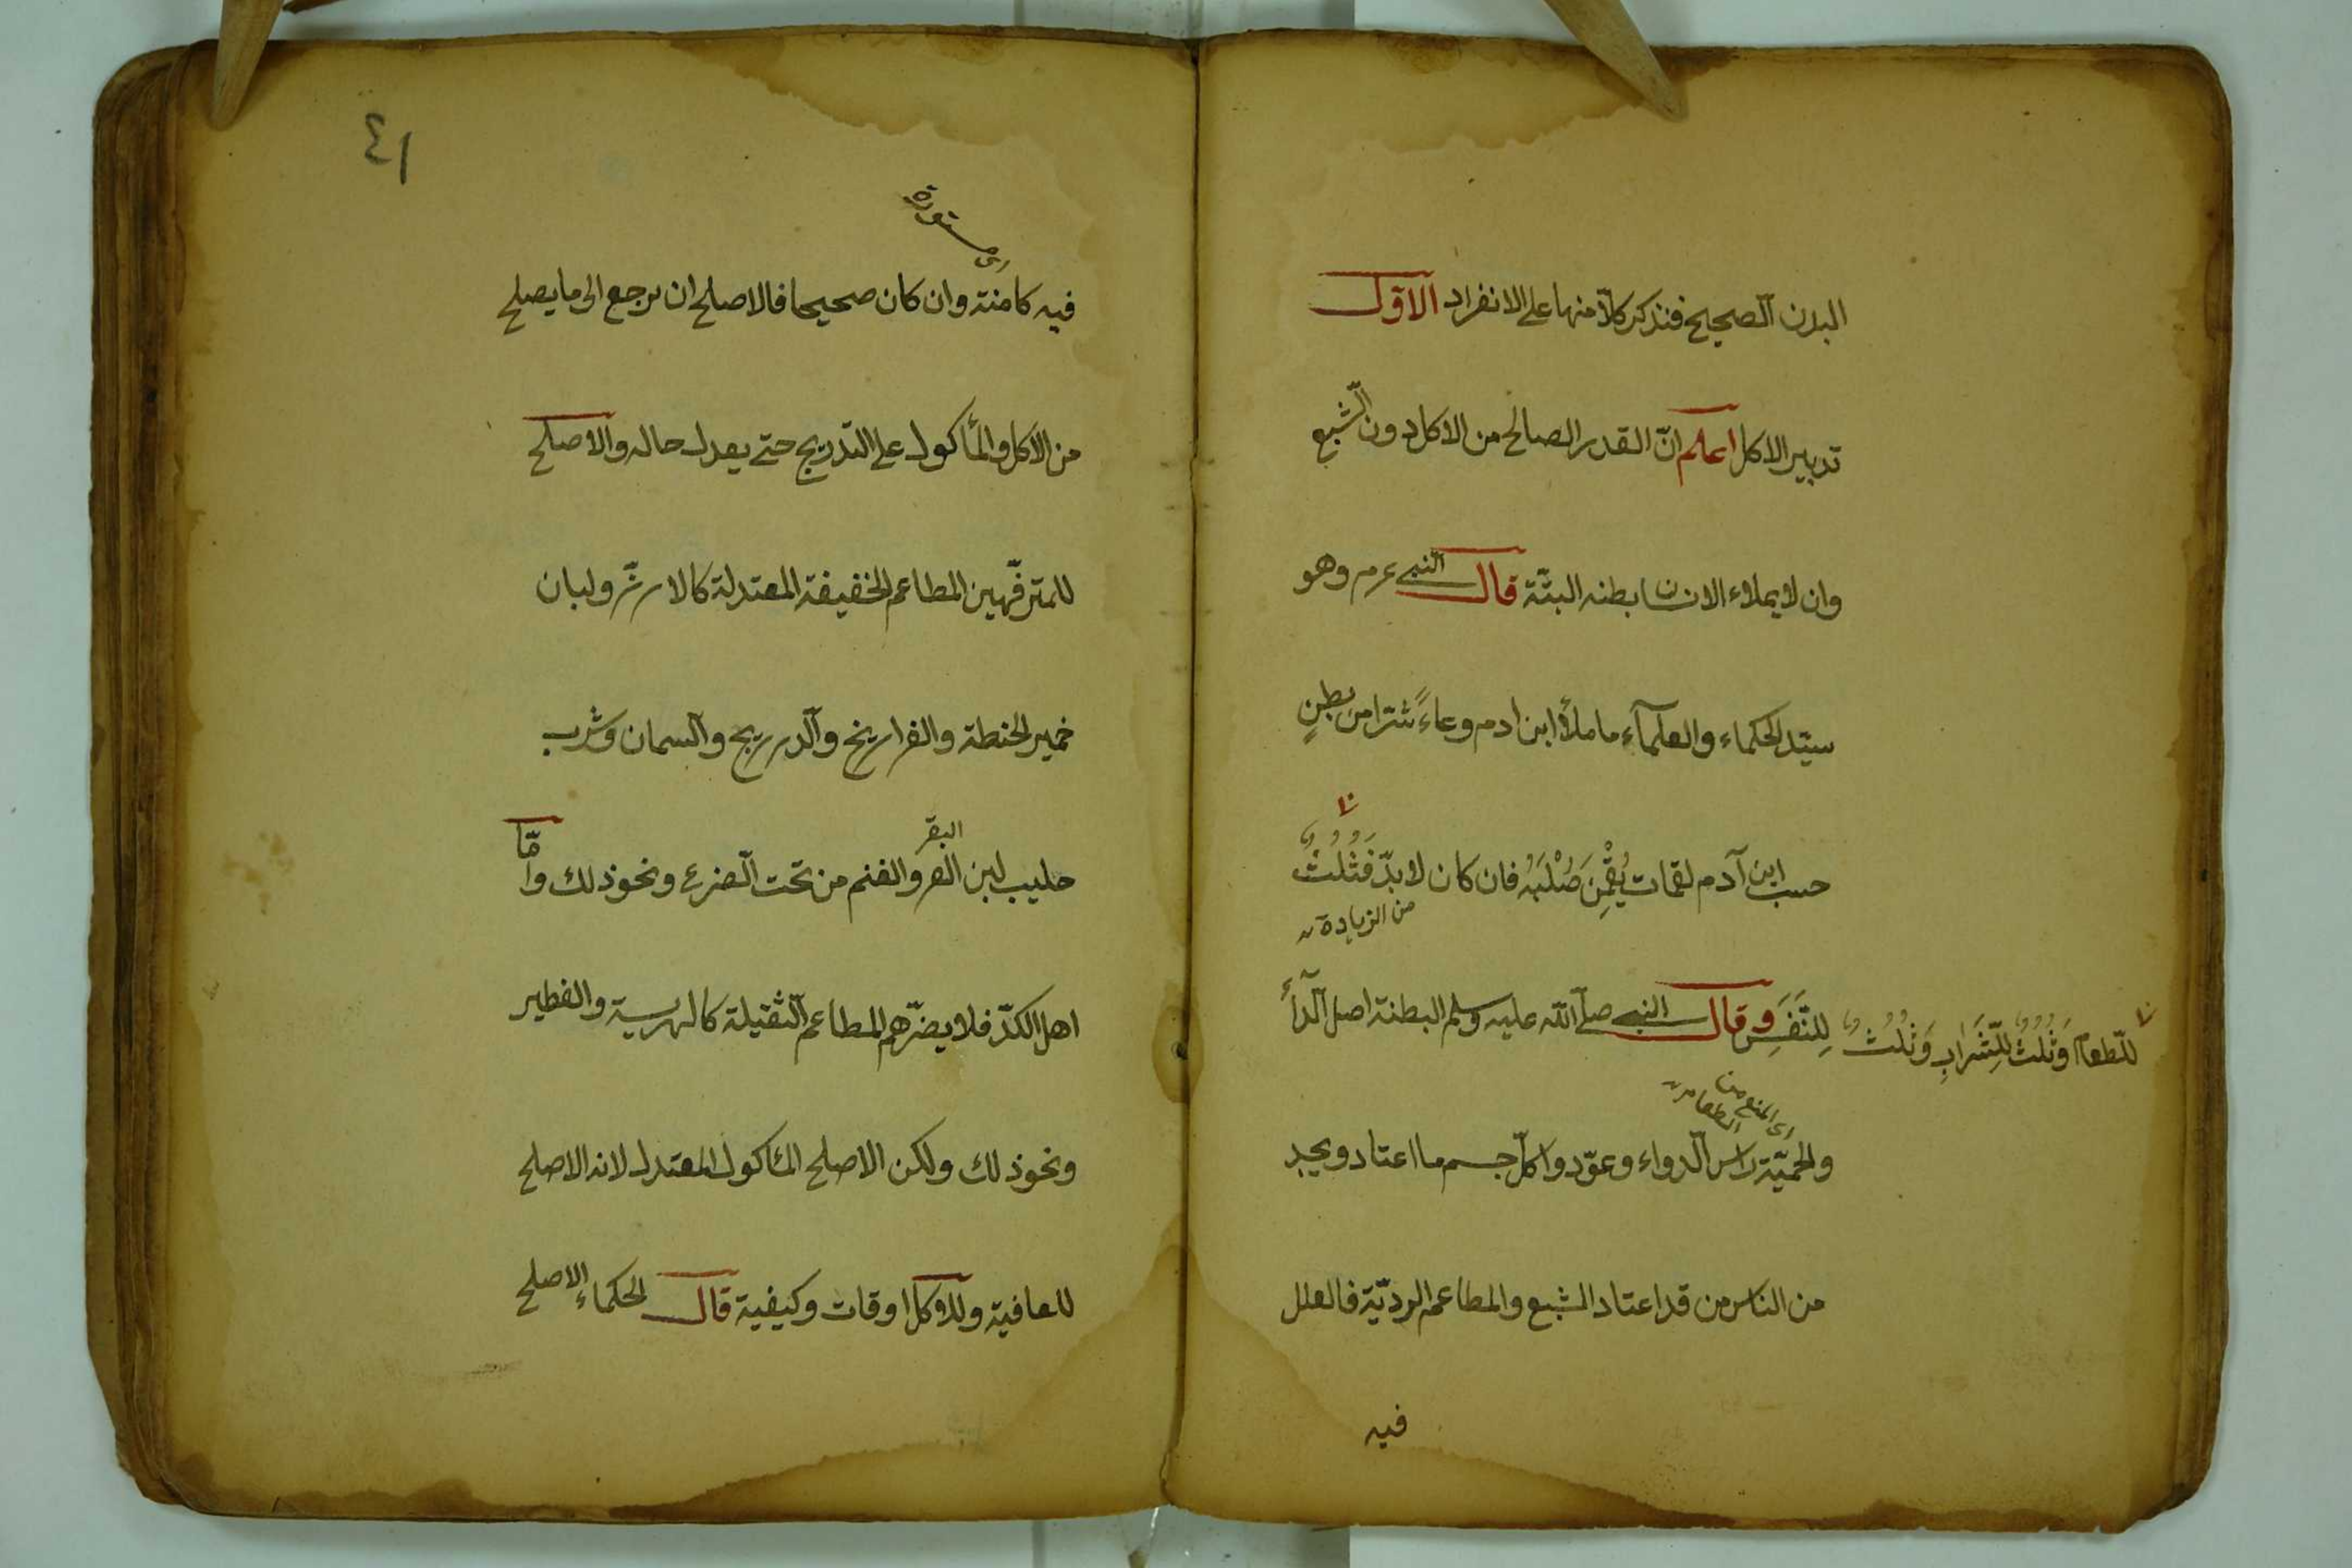 البدن الصحيح فنذكر كلاّ منها على الانفراد الاوّل
تدبير الاكل اعلم انّ القدر الصالح من الاكل دون الشبع
وان لا يملاء الانسان بطنه البتّة قال النبي عرم وهو
سيّد الحكماء والعلمآء ما ملأ ابن ادم وعاءً شرّا من بطنٍ
حسب ابن آدم لقمات يُقْمِنَ صُلْبَهُ فان كان لا بدّ فَثُلُثٌ
من الزيادة
للطعام وَثُلُثٌ لِلشَّرَابِ وَثُلُثٌ لِلنَّفَسِ وقال النبي صلّى الله عليه وسلم البطنة اصل الدآء
اى المنع من الطعام
والحميّة راس الدواء وعوّدوا كلّ جسم ما اعتاد ويجد
من الناس من قد اعتاد الشبع والمطاعم الرديّة فالعلل
فيه
٤١
فيه كامنة وان كان صحيحا فالاصلح ان يرجع الى ما يصلح
من الاكل والمأكول على التدريج حتى يعدل حاله والاصلح
للمترفّهين المطاعم الخفيفة المعتدلة كالارزّ ولبان
خمير الحنطة والفراريخ والدرريج والسمان وشرب
البقر
حليب لبن البقر والغنم من تحت الضرع ونحو ذلك وامّا
اهل الكدّ فلا يضرّهم المطاعم الثقيلة كالهرسية والفطير
ونحو ذلك ولكن الاصلح المأكول المعتدل لانه الاصلح
للعافية وللاكل اوقات وكيفية قال الحكماء الاصلح